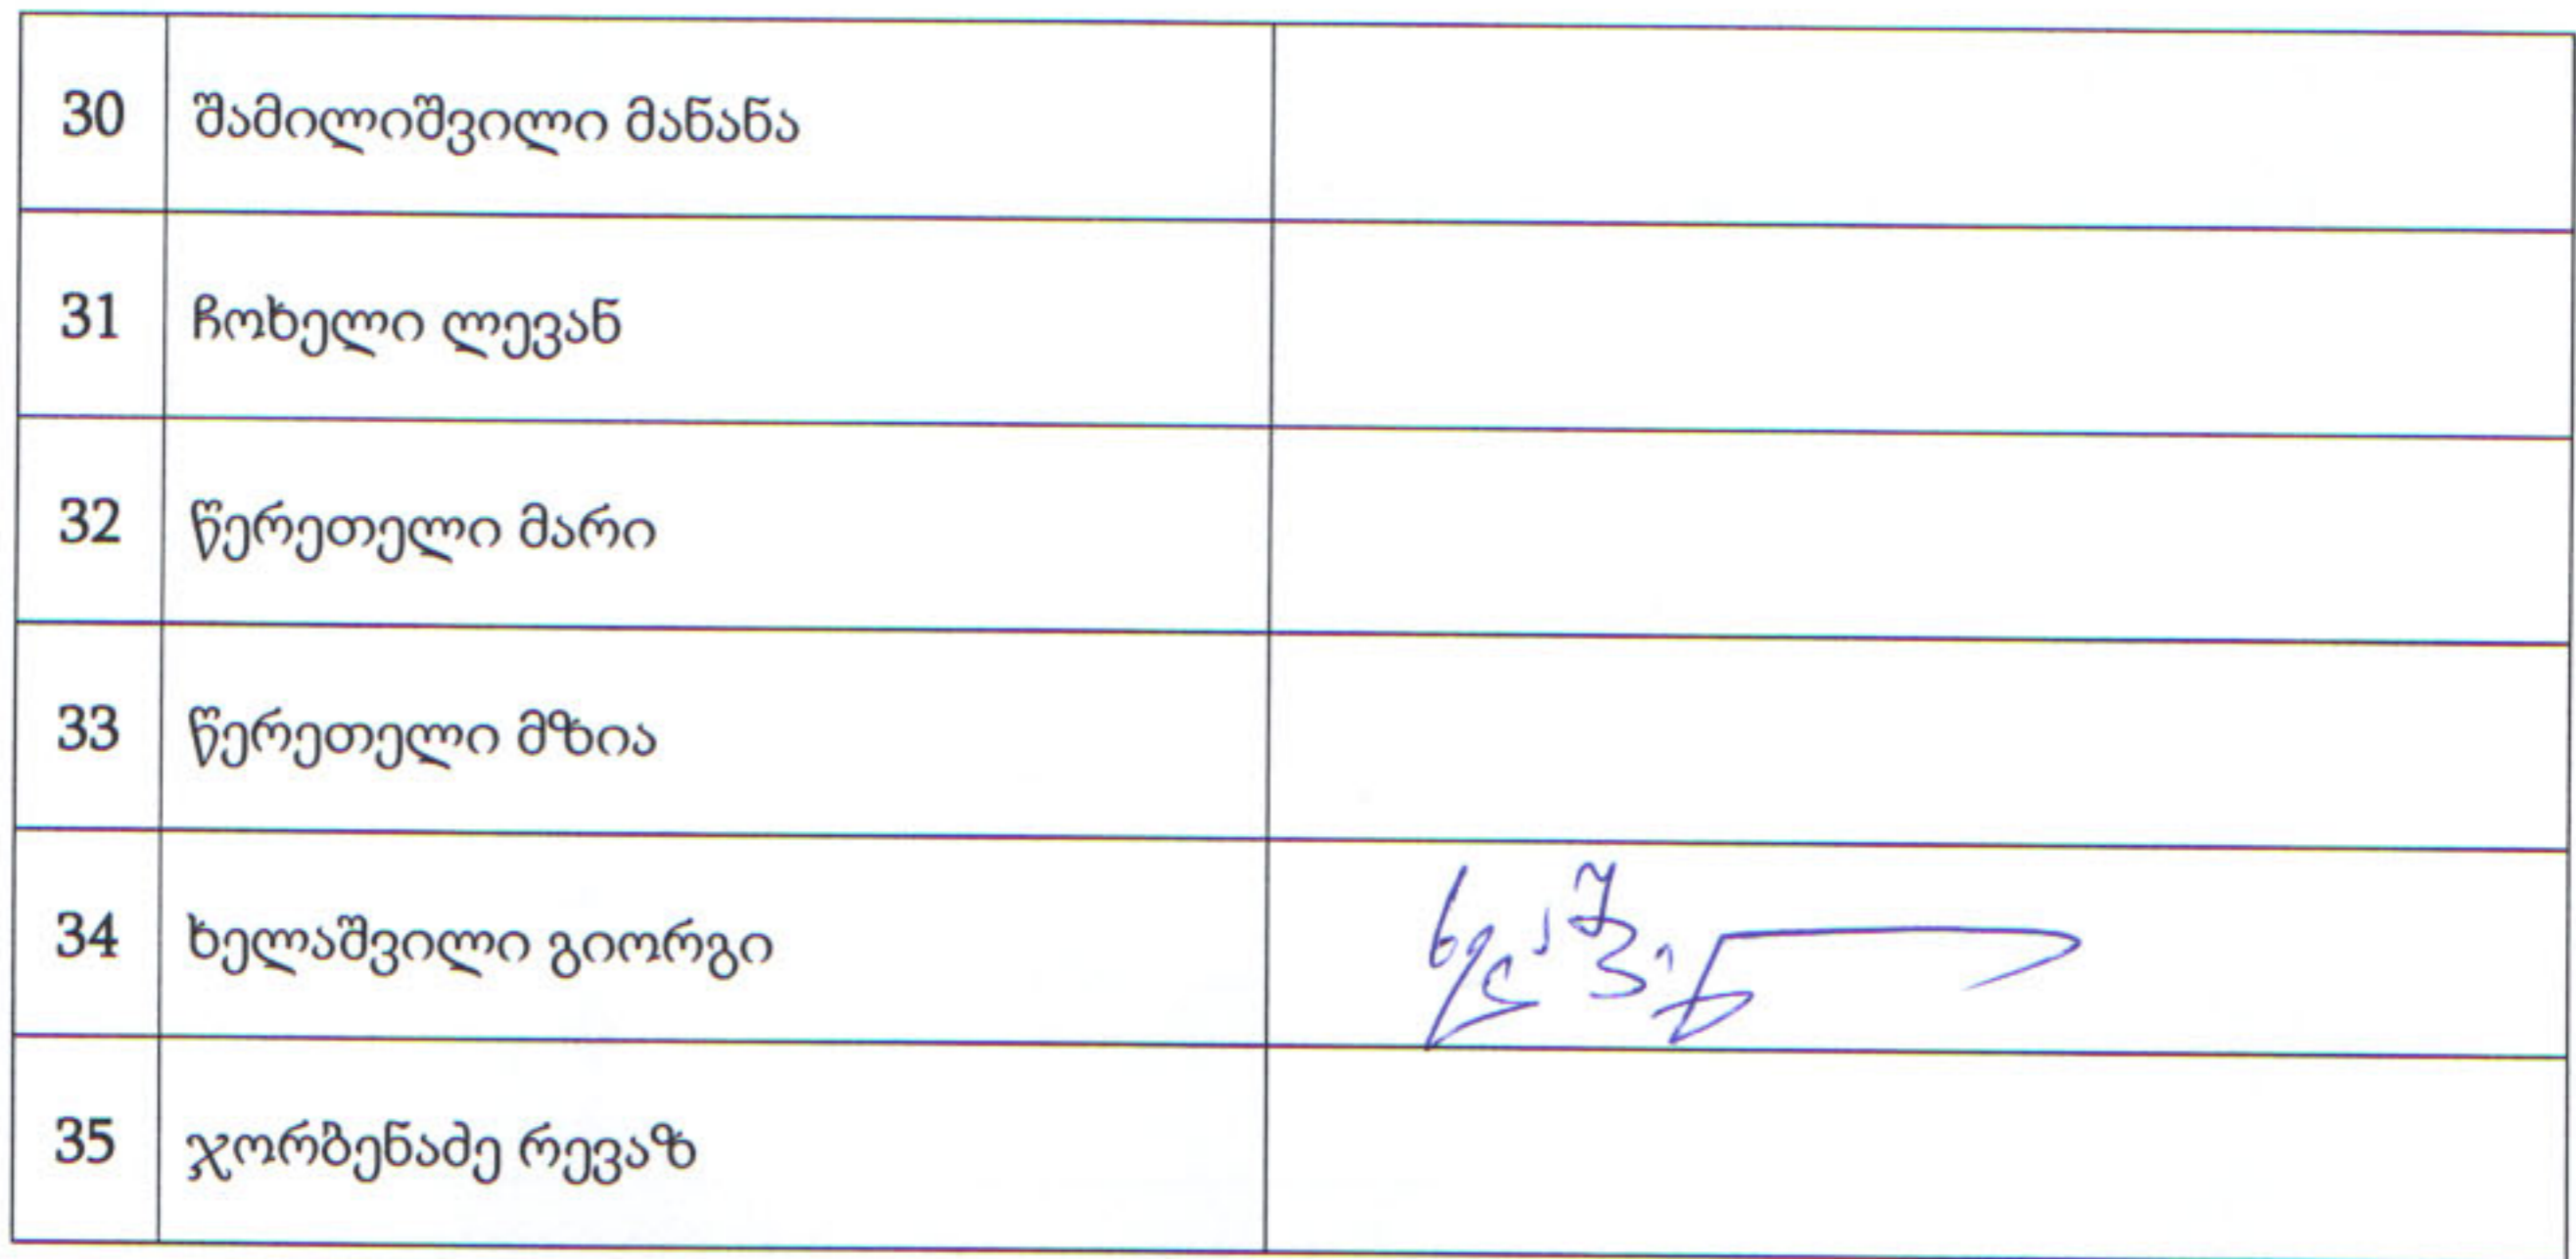 30 შამილიშვილი მანანა
31 ჩოხელი ლევან
32 წერეთელი მარი
33 წერეთელი მზია
34 ხელაშვილი გიორგი
35 ჯორბენაძე რევაზ